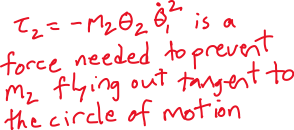 τ₂ = -m₂θ₂θ̇₁² is a
force needed to prevent
m₂ flying out tangent to
the circle of motion